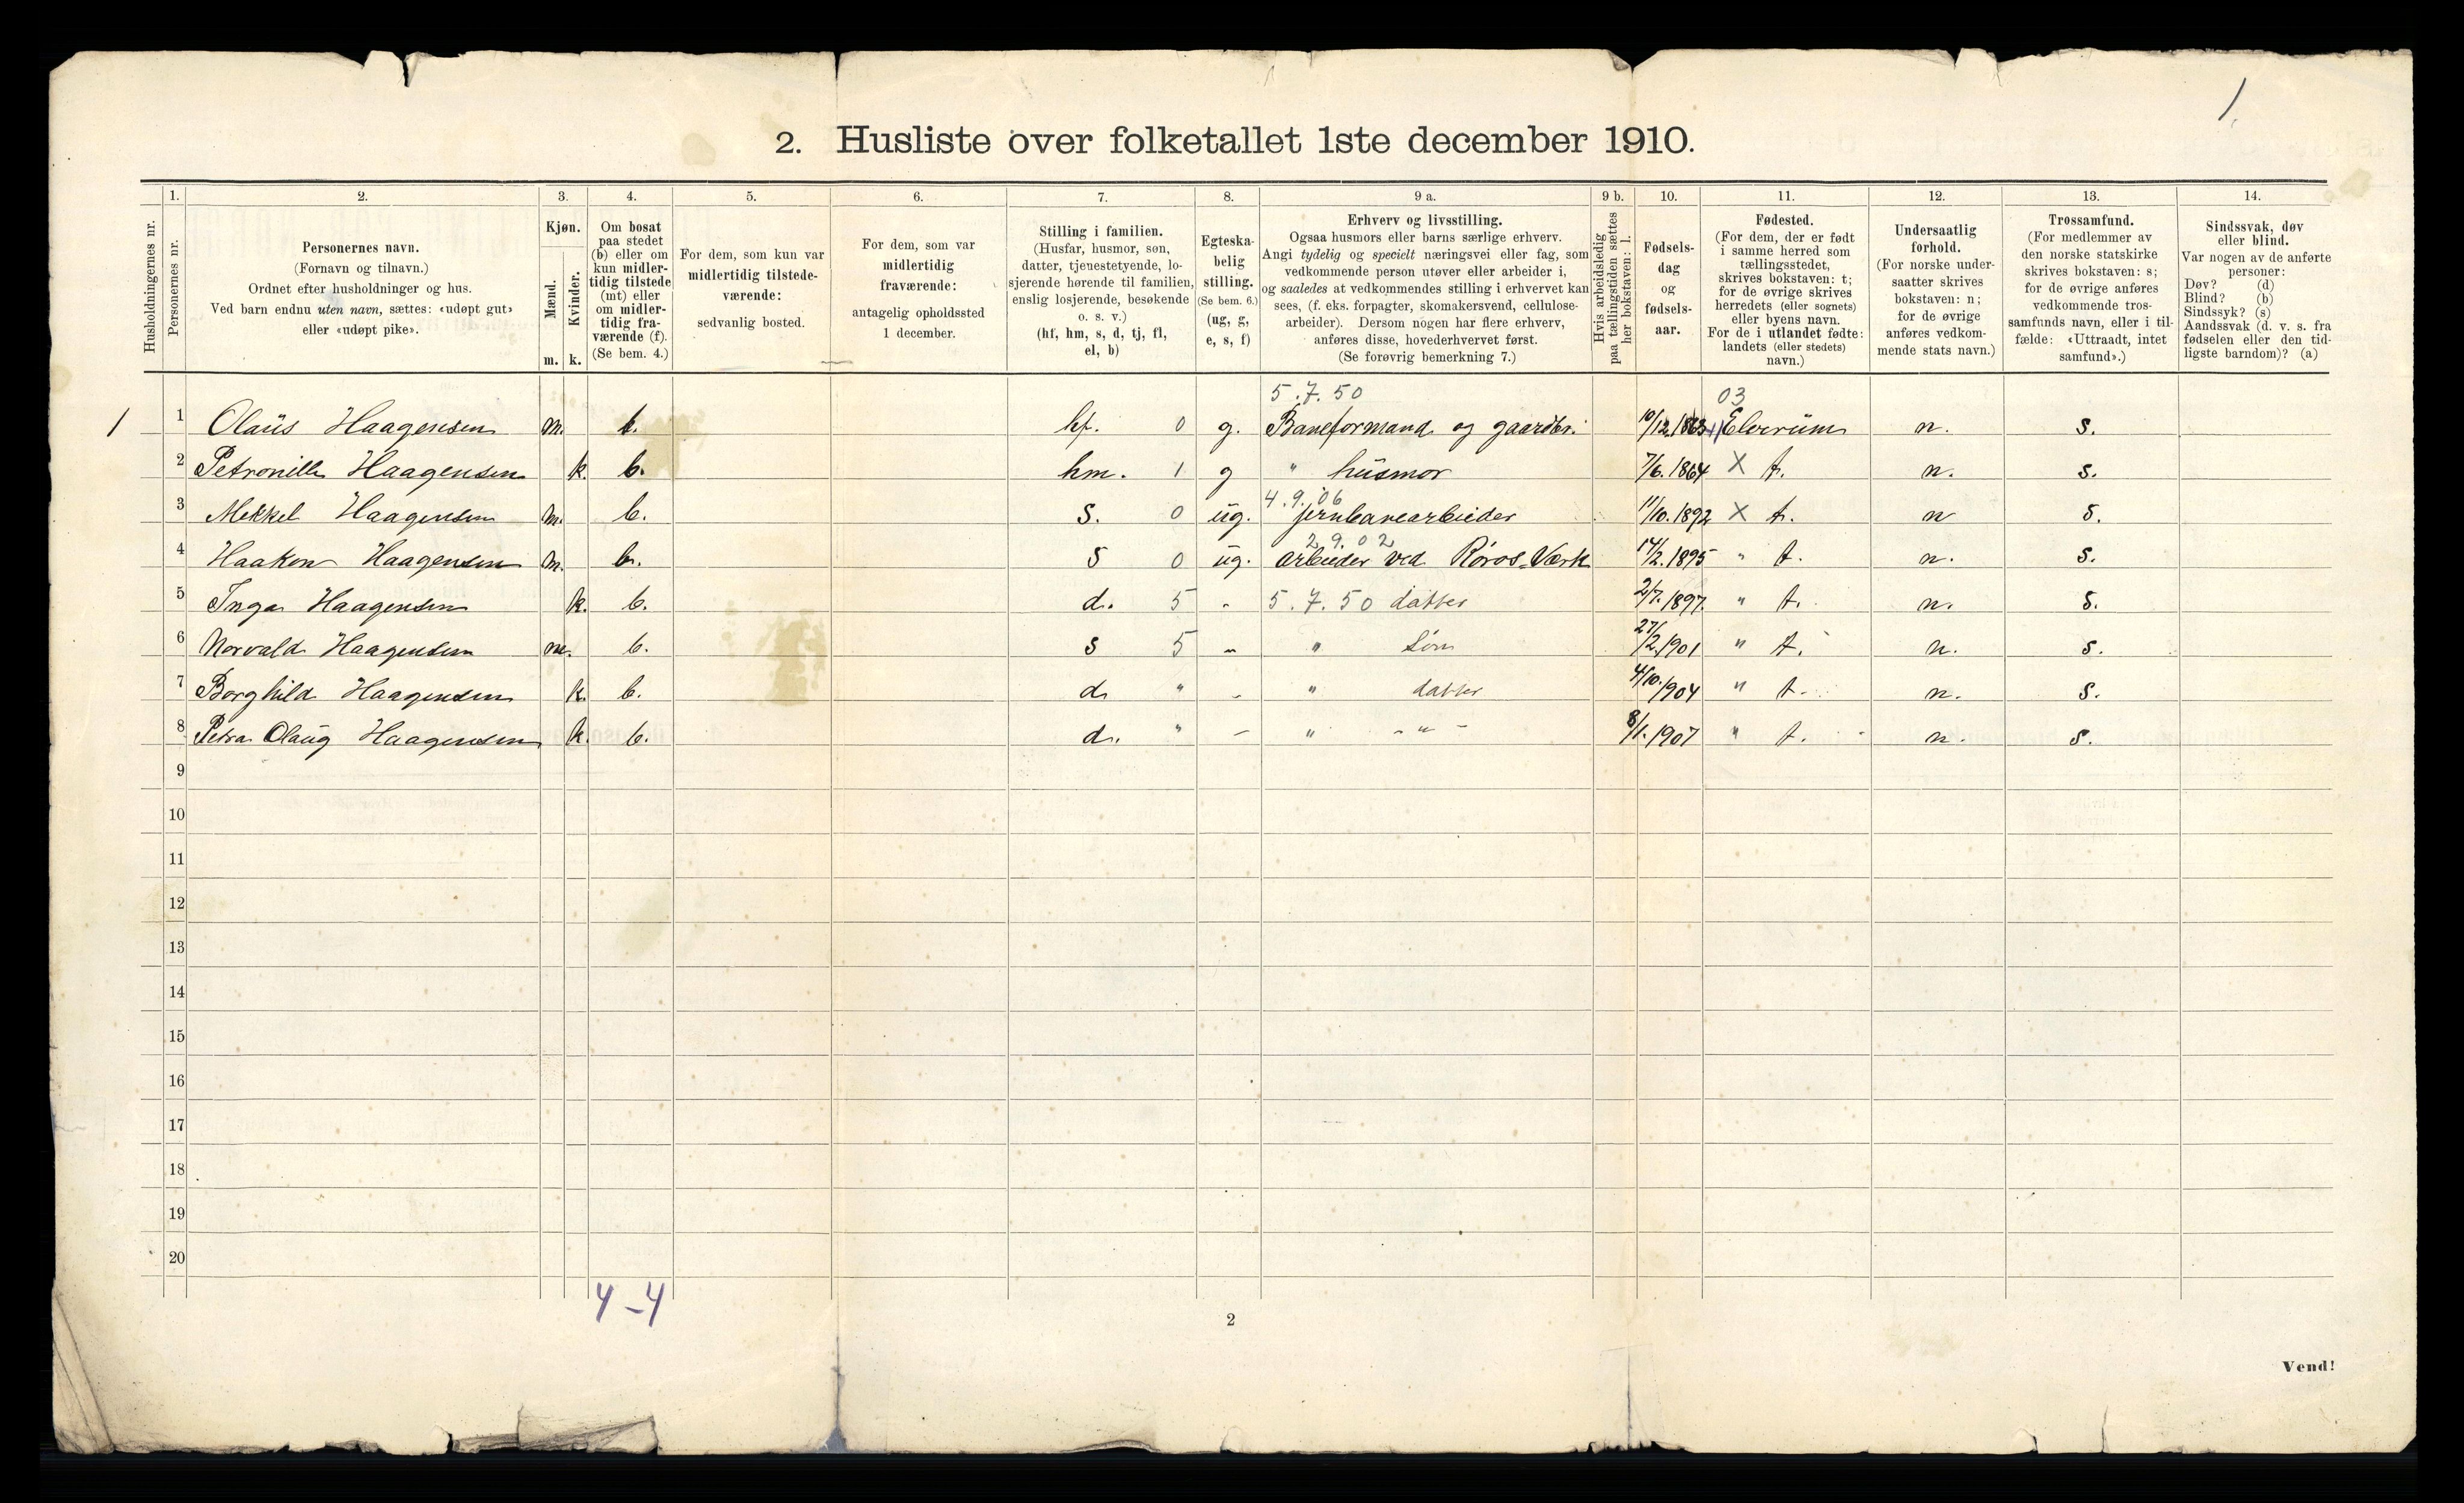 1.
2. Husliste over folketallet 1ste december 1910.
1. 2. 3. 4. 5. 6. 7. 8. 9 a. 9 b. 10. 11. 12. 13. 14.
Husholdningernes nr.
Personernes nr.
Personernes navn.
(Fornavn og tilnavn.)
Ordnet efter husholdninger og hus.
Ved barn endnu uten navn, sættes: «udøpt gut»
eller «udøpt pike».
Kjøn.
Mænd.
m.
Kvinder.
k.
Om bosat
paa stedet
(b) eller om
kun midler-
tidig tilstede
(mt) eller
om midler-
tidig fra-
værende (f).
(Se bem. 4.)
For dem, som kun var
midlertidig tilstede-
værende:
sedvanlig bosted.
For dem, som var
midlertidig
fraværende:
antagelig opholdssted
1 december.
Stilling i familien.
(Husfar, husmor, søn,
datter, tjenestetyende, lo-
sjerende hørende til familien,
enslig losjerende, besøkende
o. s. v.)
(hf, hm, s, d, tj, fl,
el, b)
Egteska-
belig
stilling.
(Se bem. 6.)
(ug, g,
e, s, f)
Erhverv og livsstilling.
Ogsaa husmors eller barns særlige erhverv.
Angi tydelig og specielt næringsvei eller fag, som
vedkommende person utøver eller arbeider i,
og saaledes at vedkommendes stilling i erhvervet kan
sees, (f. eks. forpagter, skomakersvend, cellulose-
arbeider). Dersom nogen har flere erhverv,
anføres disse, hovederhvervet først.
(Se forøvrig bemerkning 7.)
Hvis arbeidsledig
paa tællingstiden sættes
her bokstaven: l.
Fødsels-
dag
og
fødsels-
aar.
Fødested.
(For dem, der er født
i samme herred som
tællingsstedet,
skrives bokstaven: t;
for de øvrige skrives
herredets (eller sognets)
eller byens navn.
For de i utlandet fødte:
landets (eller stedets)
navn.)
Undersaatlig
forhold.
(For norske under-
saatter skrives
bokstaven: n;
for de øvrige
anføres vedkom-
mende stats navn.)
Trossamfund.
(For medlemmer av
den norske statskirke
skrives bokstaven: s;
for de øvrige anføres
vedkommende tros-
samfunds navn, eller i til-
fælde: «Uttraadt, intet
samfund».)
Sindssvak, døv
eller blind.
Var nogen av de anførte
personer:
Døv? (d)
Blind? (b)
Sindssyk? (s)
Aandssvak (d. v. s. fra
fødselen eller den tid-
ligste barndom)? (a)
5.7.50 03
1 1 Olaüs Haagensen m. b. hf. 0 g. Baneformand og gaardbr. 10/12.1863 Elverüm n. s.
2 Petronille Haagensen k. b. hm. 1 g " hüsmor 7/6.1864 X t. n. s.
4.9.06
3 Mekkel Haagensen m. b. s. 0 üg. jernbanearbeider 11/10.1892 X t. n s.
2.9.02
4 Haakon Haagensen m. b. s 0 üg. arbeider ved Røros Værk 14/2.1895 " t. n. s.
5 Inga Haagensen k. b. d. 5 - 5.7.50 datter 2/7.1897. " t. n. s.
6 Norvald Haagensen m. b. s 5 - " søn 27/2.1901 " t. n. s.
7 Borghild Haagensen k. b. d " - " datter 4/10.1904 " t. n. s.
8 Petra Olaüg Haagensen k. b. d. " - " - " - 8/1.1907 " t. n. s.
9
10
11
12
13
14
15
16
17
18
19
20
4-4
2
Vend!